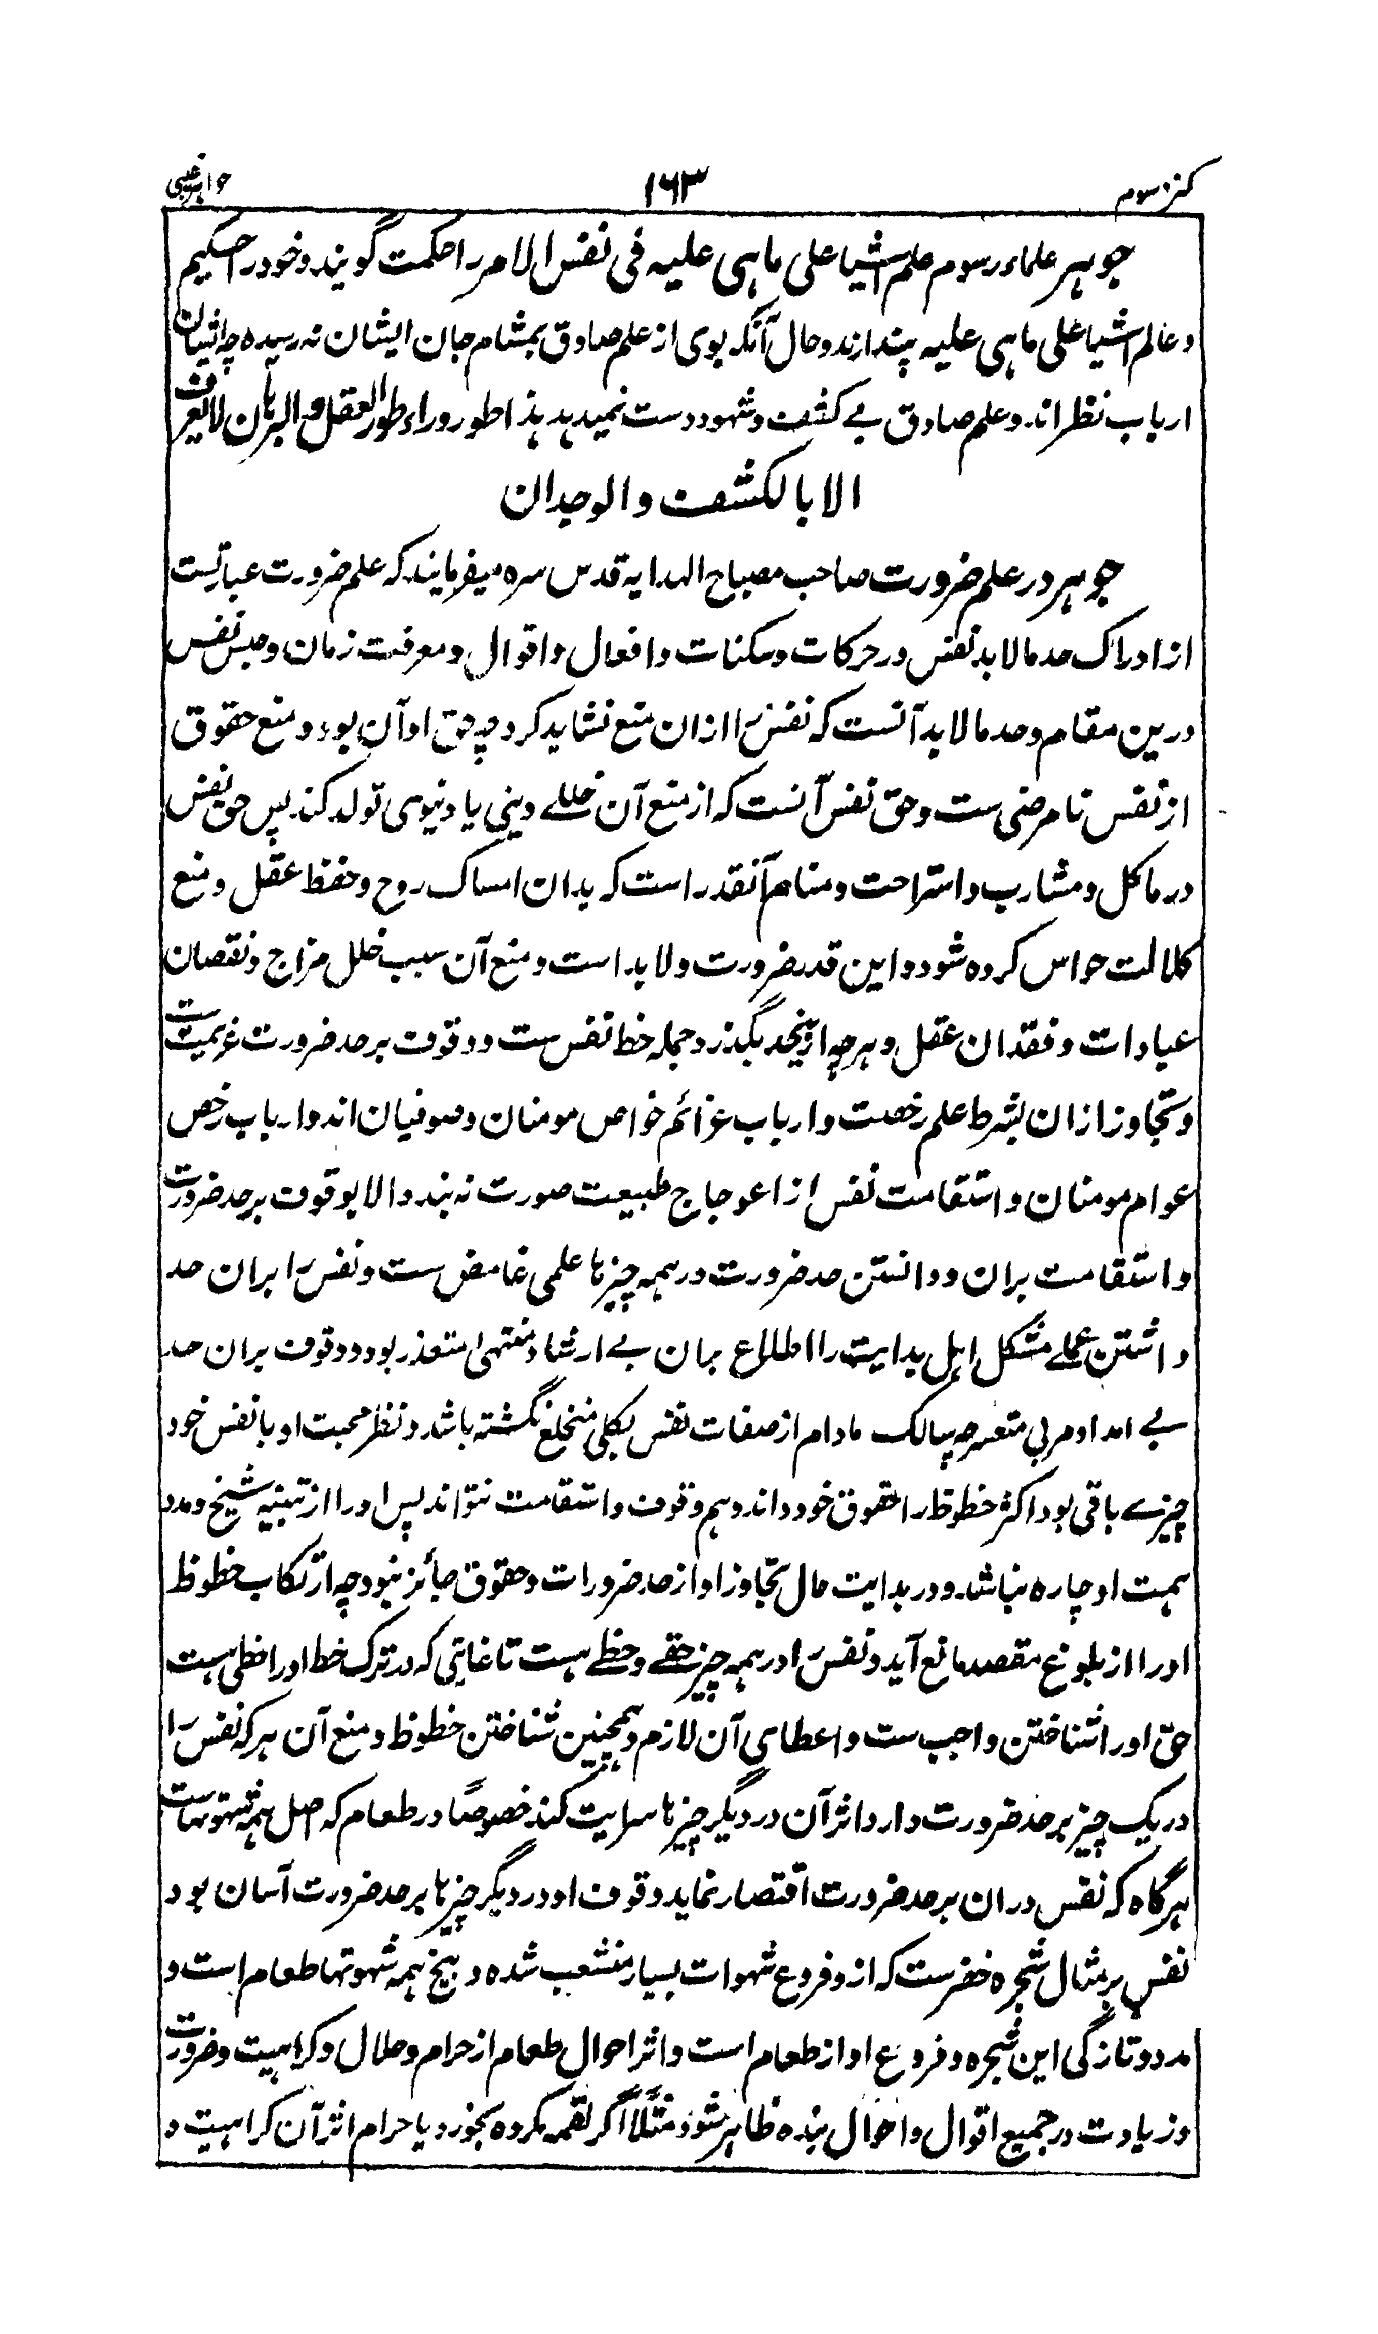 کنز سوم
۱۶۳
جواہر غیبی
جوہر علماء رسوم علم اشیا علی ماہی علیہ فی نفس الامر را حکمت گویند و خود را حکیم
و عالم اشیا علی ماہی علیہ پندارند و حال آنکہ بوی از علم صادق بمشام جان ایشان نہ رسیدہ چہ ایشان
ارباب نظر اند و علم صادق بے کشف و شہود دست نمیدہد ہذا طور وراء طور العقل و البرہان لا یعرف
الا بالکشف و الوجدان
جوہر در علم ضرورت صاحب مصباح الہدایہ قدس سرہ میفرمایند کہ علم ضرورت عبارتست
از ادراک حد مالابد نفس در حرکات و سکنات و افعال و اقوال و معرفت زمان و حبس نفس
درین مقام و حد مالابد آنست کہ نفس را ازان منع نشاید کرد چہ حق او آن بود و منع حقوق
از نفس نامرضی ست و حق نفس آنست کہ از منع آن خللے دینی یا دنیوی تولد کند پس حق نفس
در ماکل و مشارب و استراحت و منام آنقدر است کہ بدان امساک روح و حفظ عقل و منع
کلالت حواس کردہ شود و این قدر ضرورت و لابد است و منع آن سبب خلل مزاج و نقصان
عبادات و فقدان عقل و ہرچہ ازینحد بگذرد جملہ حظ نفس ست و وقوف بر حد ضرورت عزیمت ست
و تجاوز ازان بشرط علم رخصت و ارباب عزائم خواص مومنان و صوفیان اند و ارباب رخص
عوام مومنان و استقامت نفس از اعوجاج طبیعت صورت نہ بندد الا بوقوف بر حد ضرورت
و استقامت بران و دانستن حد ضرورت در ہمہ چیزہا علمی غامض ست و نفس را بران حد
داشتن عملے مشکل اہل بدایت را اطلاع بران بے ارشاد منتہی متعذر بود و وقوف بران حد
بے امداد مربی متعسر چہ سالک مادام از صفات نفس بکلی منخلع نگشتہ باشد و نظر محبت او با نفس خود
چیزے باقی بود اکثر حظوظ را حقوق خود داند و ہم وقوف و استقامت نتواند پس او را از تنبیہ شیخ و مدد
ہمت او چارہ نباشد و در بدایت حال تجاوز او از حد ضرورات و حقوق جائز نبود چہ ارتکاب حظوظ
او را از بلوغ مقصد مانع آید و نفس را در ہمہ چیز حقے و حظے ہست تا غایتی کہ در ترک حظ او را حظی ہست
حق او را شناختن واجب ست و اعطای آن لازم و ہمچنین شناختن حظوظ و منع آن ہر کہ نفس را
در یک چیز بر حد ضرورت دارد اثر آن در دیگر چیزہا سرایت کند خصوصًا در طعام کہ اصل ہمہ شہوتہاست
ہرگاہ کہ نفس دران بر حد ضرورت اقتصار نماید وقوف او در دیگر چیزہا بر حد ضرورت آسان بود
نفس بر مثال شجرہ خضرست کہ ازو فروع شہوات بسیار منشعب شدہ و بیخ ہمہ شہوتہا طعام است و
مدد و تازگی این شجرہ و فروع او از طعام است و اثر احوال طعام از حرام و حلال و کراہیت و ضرورت
و زیادت در جمیع اقوال و احوال بندہ ظاہر شود مثلًا اگر لقمہ مکروہ بخورد یا حرام اثر آن کراہیت و